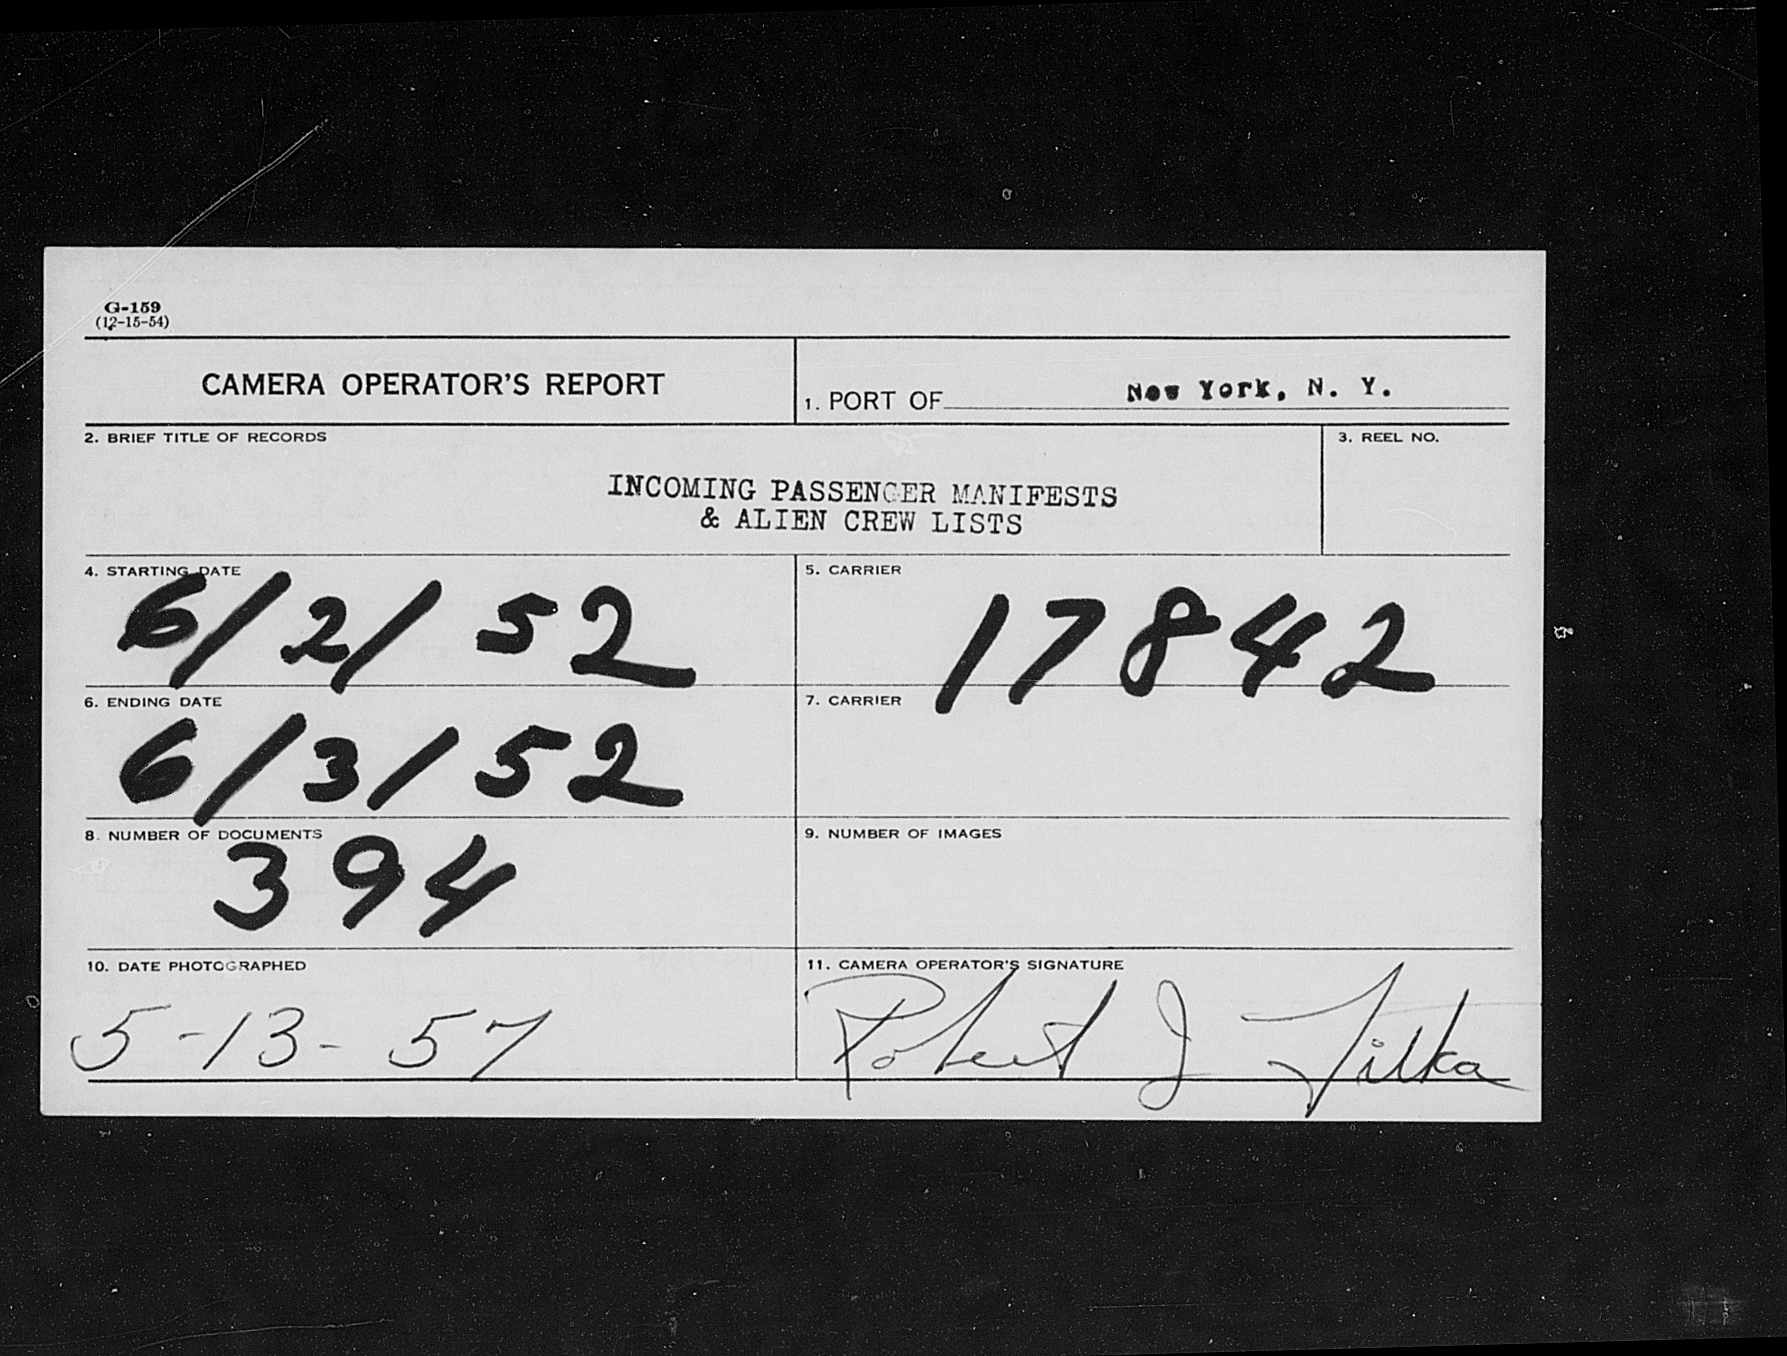 G-159
(12-15-54)
CAMERA OPERATOR'S REPORT
1. PORT OF New York, N. Y.
2. BRIEF TITLE OF RECORDS
3. REEL NO.
INCOMING PASSENGER MANIFESTS
& ALIEN CREW LISTS
4. STARTING DATE
6/2/52
5. CARRIER
17842
6. ENDING DATE
6/3/52
7. CARRIER
8. NUMBER OF DOCUMENTS
394
9. NUMBER OF IMAGES
10. DATE PHOTOGRAPHED
5-13-57
11. CAMERA OPERATOR'S SIGNATURE
Robert J